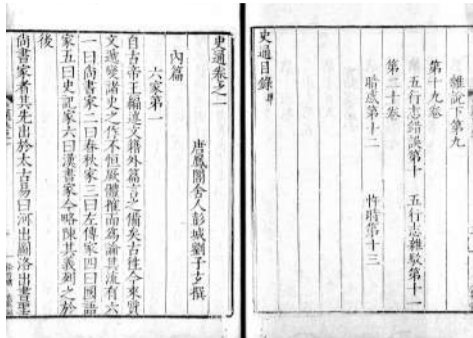 雜說下第九
第十九卷
五行志錯誤第十 五行志雜駁第十一
第二十卷
暗惑第十二 忤時第十三
史通目錄畢
史通卷之一
唐鳳閣舍人彭城劉子玄撰
內篇
六家第一
自古帝王編述文籍外篇言之備矣古往今來質
文遞變諸史之作不恒厥體推而為論其流有六
一曰尚書家二曰春秋家三曰左傳家四曰國語
家五曰史記家六曰漢書家今略陳其義列之於
後
尚書家者其先出於太古易曰河出圖洛出書聖